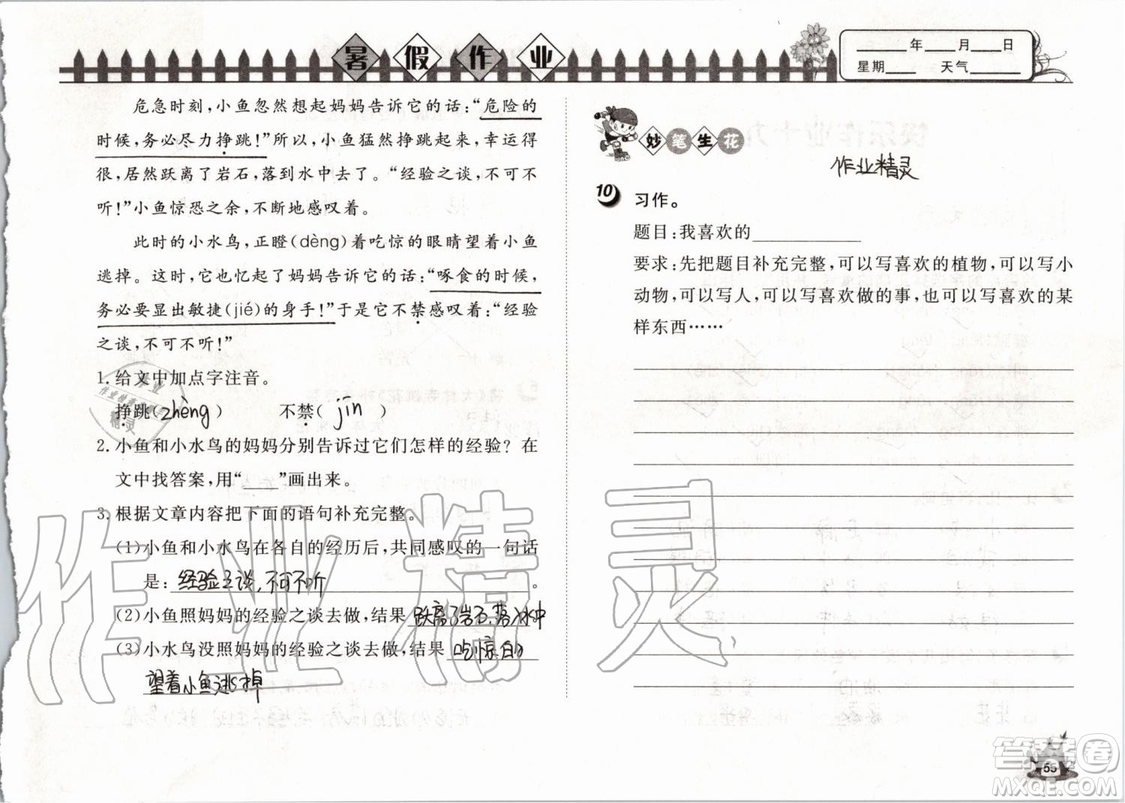 暑假作业
____年____月____日
星期____ 天气____
危急时刻，小鱼忽然想起妈妈告诉它的话：“危险的
时候，务必尽力挣跳！”所以，小鱼猛然挣跳起来，幸运得
很，居然跃离了岩石，落到水中去了。“经验之谈，不可不
听！”小鱼惊恐之余，不断地感叹着。
此时的小水鸟，正瞪（dèng）着吃惊的眼睛望着小鱼
逃掉。这时，它也忆起了妈妈告诉它的话：“啄食的时候，
务必要显出敏捷（jié）的身手！”于是它不禁感叹着：“经验
之谈，不可不听！”
1. 给文中加点字注音。
挣跳（zhèng） 不禁（jīn）
2. 小鱼和小水鸟的妈妈分别告诉过它们怎样的经验？在
文中找答案，用“____”画出来。
3. 根据文章内容把下面的语句补充完整。
（1）小鱼和小水鸟在各自的经历后，共同感叹的一句话
是：经验之谈，不可不听。
（2）小鱼照妈妈的经验之谈去做，结果跃离了岩石，落入水中
（3）小水鸟没照妈妈的经验之谈去做，结果吃惊的
望着小鱼逃掉
妙笔生花
作业精灵
10 习作。
题目：我喜欢的____________
要求：先把题目补充完整，可以写喜欢的植物，可以写小
动物，可以写人，可以写喜欢做的事，也可以写喜欢的某
样东西……
作业精灵
答案圈
MXQE.COM
65